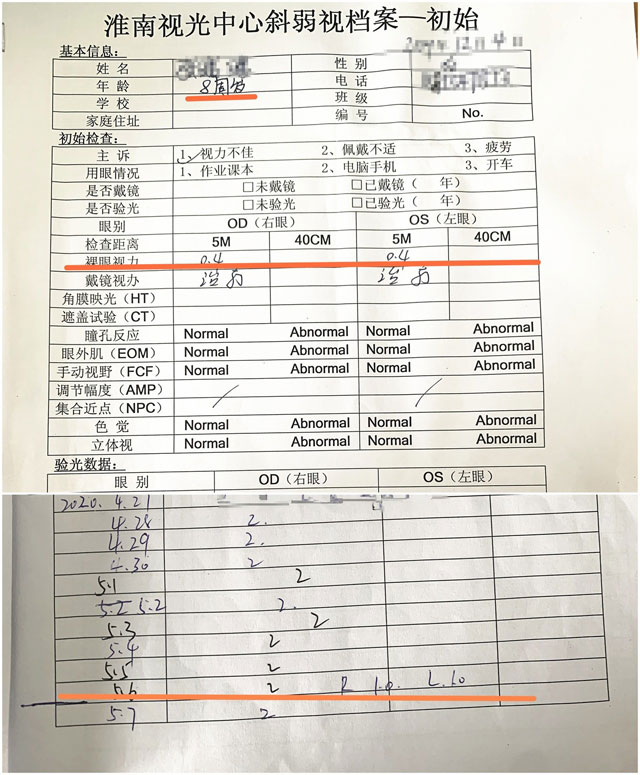 淮南视光中心斜弱视档案—初始
基本信息:
姓 名 性 别
年 龄 8周岁 电 话
学 校 班 级
家庭住址 编 号 No.
初始检查:
主 诉 1、视力不佳 2、佩戴不适 3、疲劳
用眼情况 1、作业课本 2、电脑手机 3、开车
是否戴镜 □未戴镜 □已戴镜（ 年）
是否验光 □未验光 □已验光（ 年）
眼别 OD（右眼） OS（左眼）
检查距离 5M 40CM 5M 40CM
裸眼视力 0.4 0.4
戴镜视力
角膜映光（HT）
遮盖试验（CT）
瞳孔反应 Normal Abnormal Normal Abnormal
眼外肌（EOM） Normal Abnormal Normal Abnormal
手动视野（FCF） Normal Abnormal Normal Abnormal
调节幅度（AMP）
集合近点（NPC）
色 觉 Normal Abnormal Normal Abnormal
立体视 Normal Abnormal Normal Abnormal
验光数据:
眼 别 OD（右眼） OS（左眼）
2020. 4.21
4.28 2.
4.29 2.
4.30 2
5.1 2
5.2 5.2 2.
5.3 2
5.4 2
5.5 2
5.6 2 R 1.0. L.1.0
5.7 2